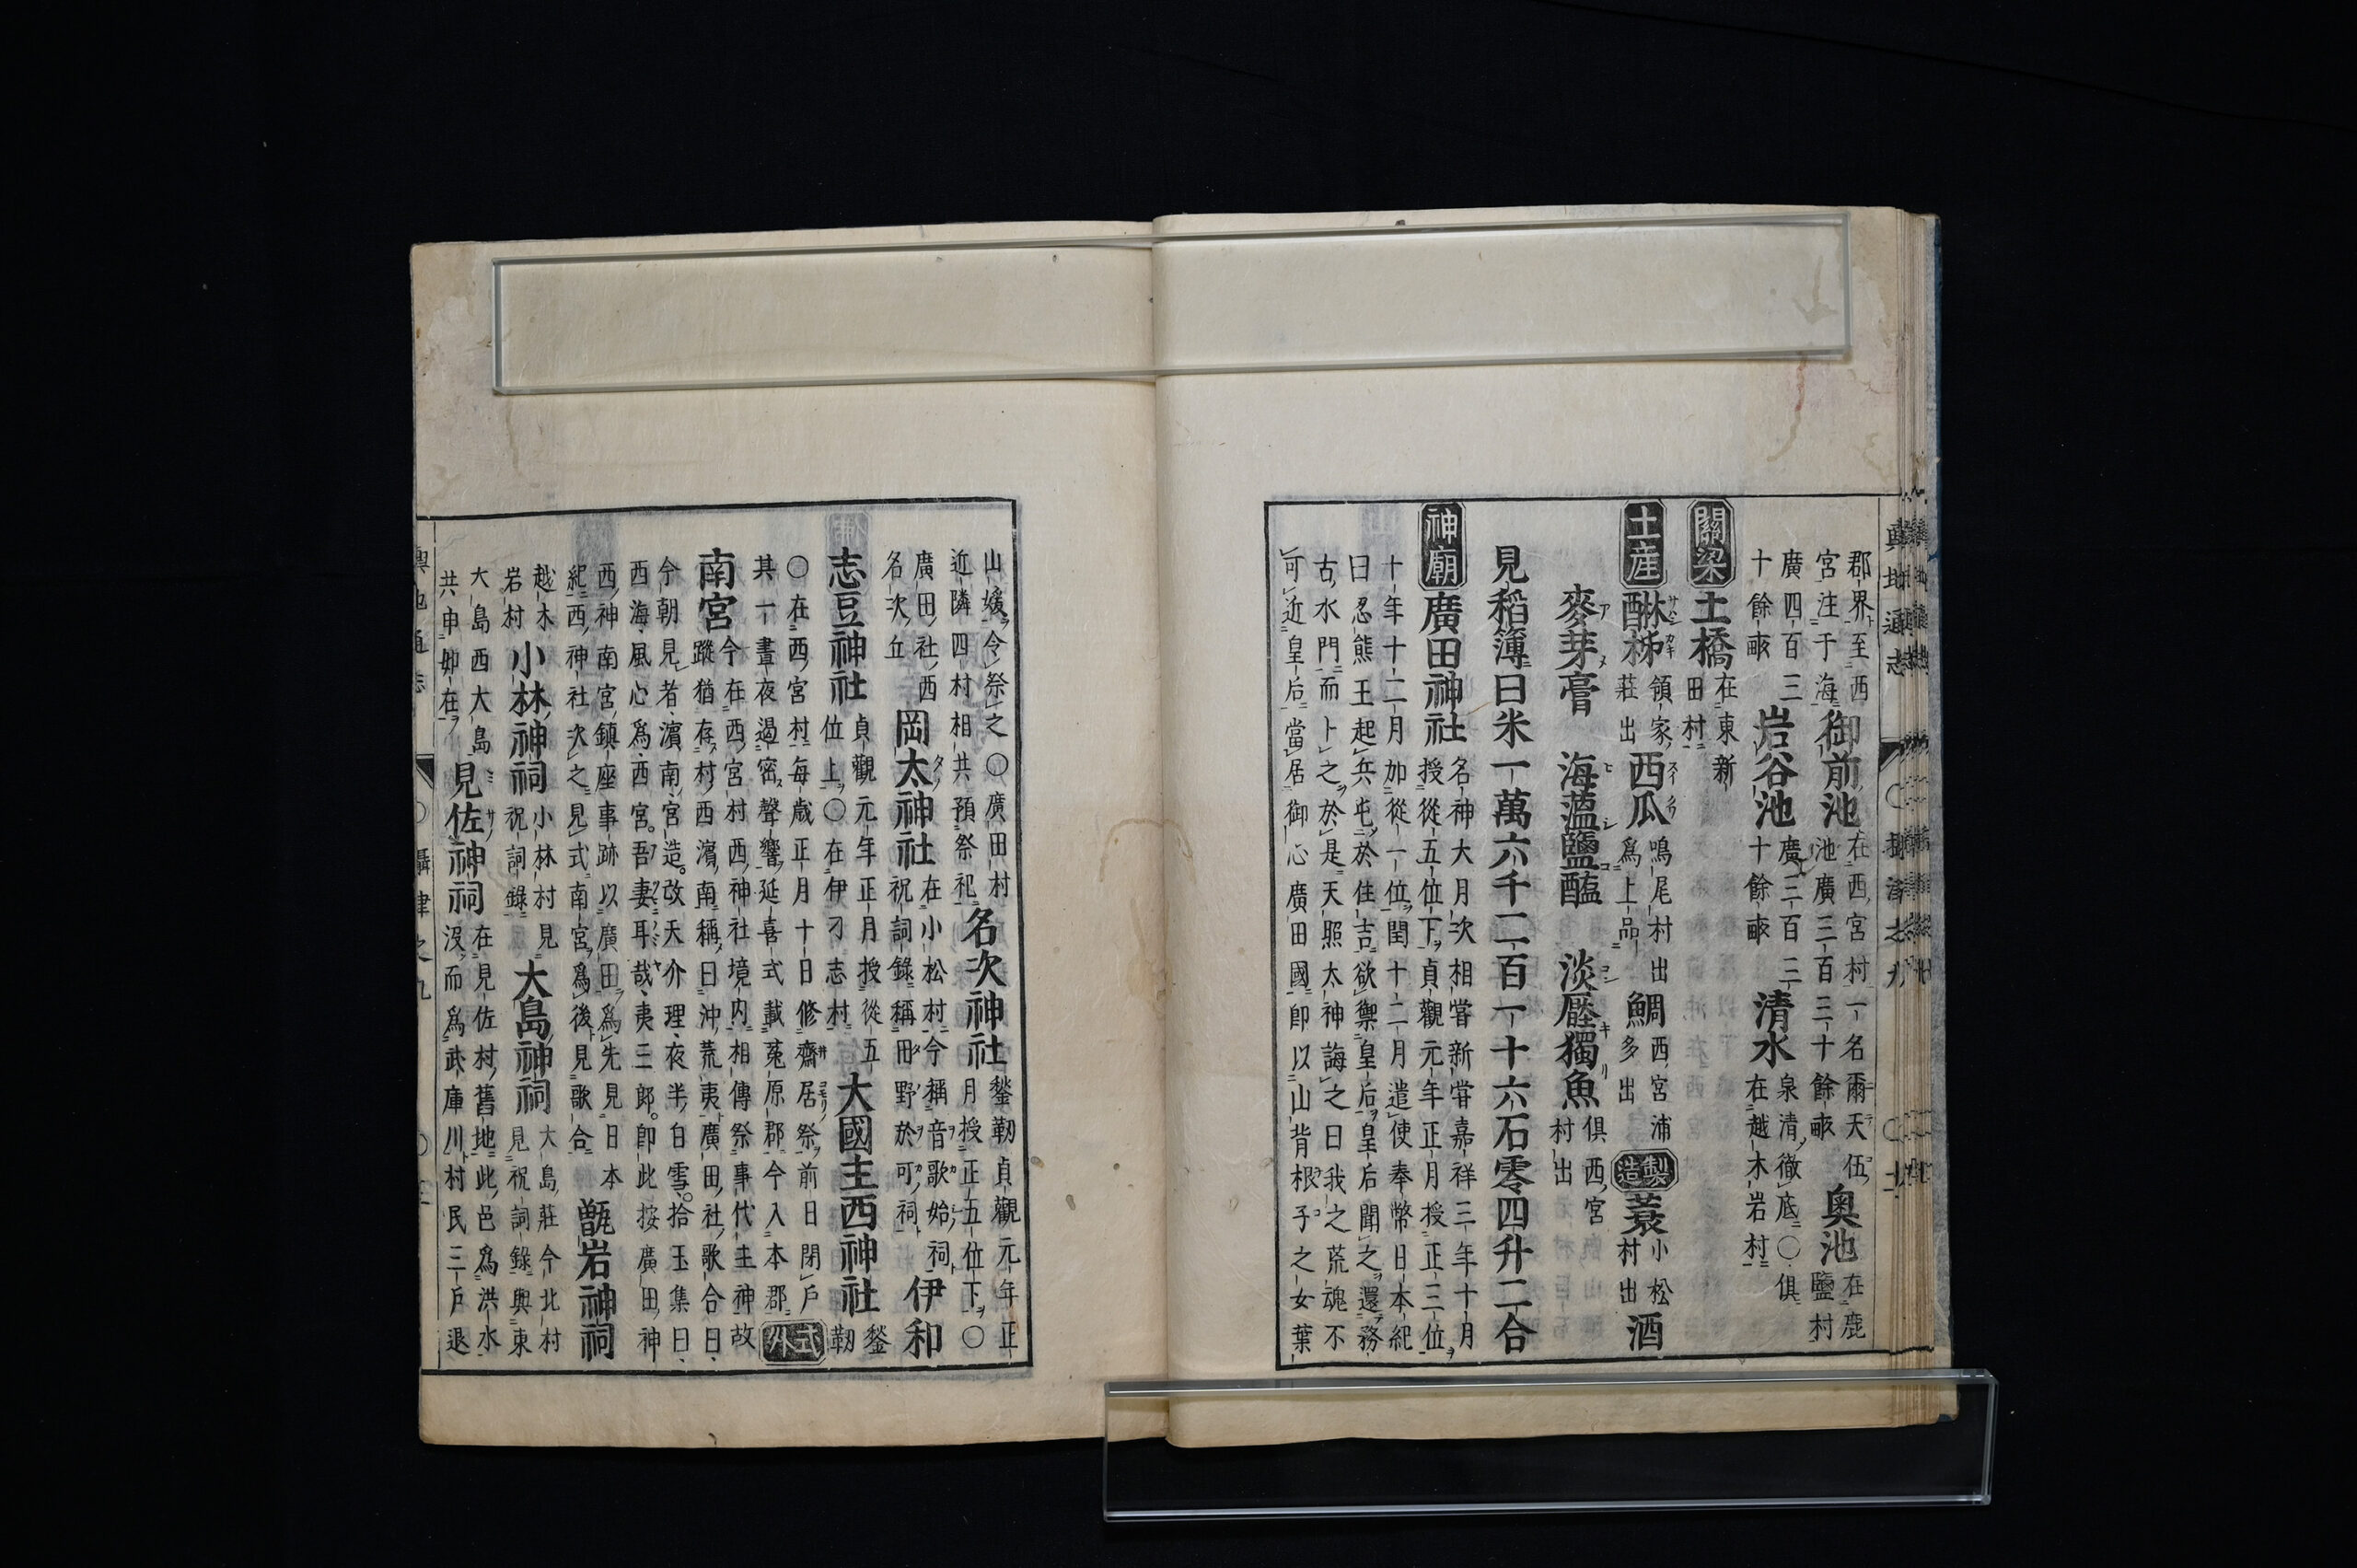 輿地通志 攝津之九
郡界至西
宮注于海
御前池
在西宮村一名爾天伍
池廣三百三十餘畝
奥池
在鹿
鹽村
廣四百三
十餘畝
岩谷池
廣三百二
十餘畝
清水
泉清徹底〇俱
在越木岩村
關梁 土橋
在東新
田村
土産 醂柹
領家
莊出
西瓜
鳴尾村出
爲上品
鯛
西宮浦
多出
製造 蓑
小松
村出
酒
麥芽膏 海薀鹽醢 淡壓獨魚
俱西宮
村出
見稻簿曰米一萬六千二百一十六石零四升二合
神廟 廣田神社
名神大月次相嘗新嘗嘉祥三年十月
授從五位下貞觀元年正月授正三位
十年十二月加從一位閏十二月遣使奉幣日本紀
曰忍熊王起兵屯於住吉欲禦皇后皇后聞之還務
古水門而卜之於是天照太神誨之曰我之荒魂不
可近皇后當居御心廣田國即以山背根子之女葉
山媛令祭之〇廣田村
近隣四村相共預祭祀
名次神社
鍫靭貞觀元年正
月授正五位下〇
廣田社西
名次丘
岡太神社
在小松村今稱音歌始祠
祝詞錄稱田野於可祠
伊和
志豆神社
貞觀元年正月授從五
位上〇在伊孑志村
大國主西神社
鍫
靭
〇在西宮村毎歳正月十日修齋居祭前日閉戶
其一晝夜遏密聲響延喜式載菟原郡今入本郡
式外
南宮
今在西宮村西神社境内相傳祭事代主神故
蹤猶存村西濱南稱曰沖荒夷廣田社歌合曰
今朝見者濱南宮造改天介理夜半白雪拾玉集曰
西海風心爲西宮吾妻耳哉夷三郎即此按廣田神
西神南宮鎮座事跡以廣田爲先見日本
紀西神社次之見式南宮爲後見歌合
甑岩神祠
越木
岩村
小林神祠
小林村見
祝詞錄
大島神祠
大島莊今北村
見祝詞錄與東
大島西大島
共申卯在
見佐神祠
在見佐村舊地此邑爲洪水
没而爲武庫川村民三戶退
輿地通志 攝津之九